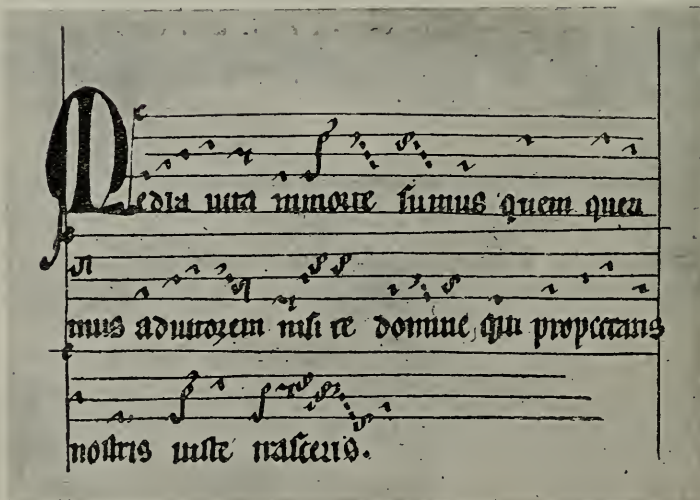 Media uita inmorte sumus quem queri
mus adiutorem nisi te domine, qui propeccatis
nostris iuste irasceris.